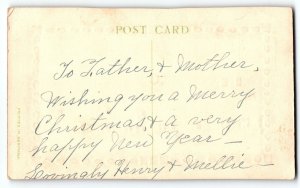 POST CARD
To Father, & Mother,
Wishing you a Merry
Christmas, & a very
happy New Year —
Lovingly Henry & Mellie —